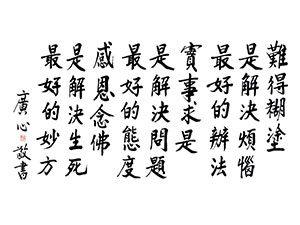 難得糊塗
是解決煩惱
最好的辦法
實事求是
是解決問題
最好的態度
感恩念佛
是解決生死
最好的妙方
廣心敬書